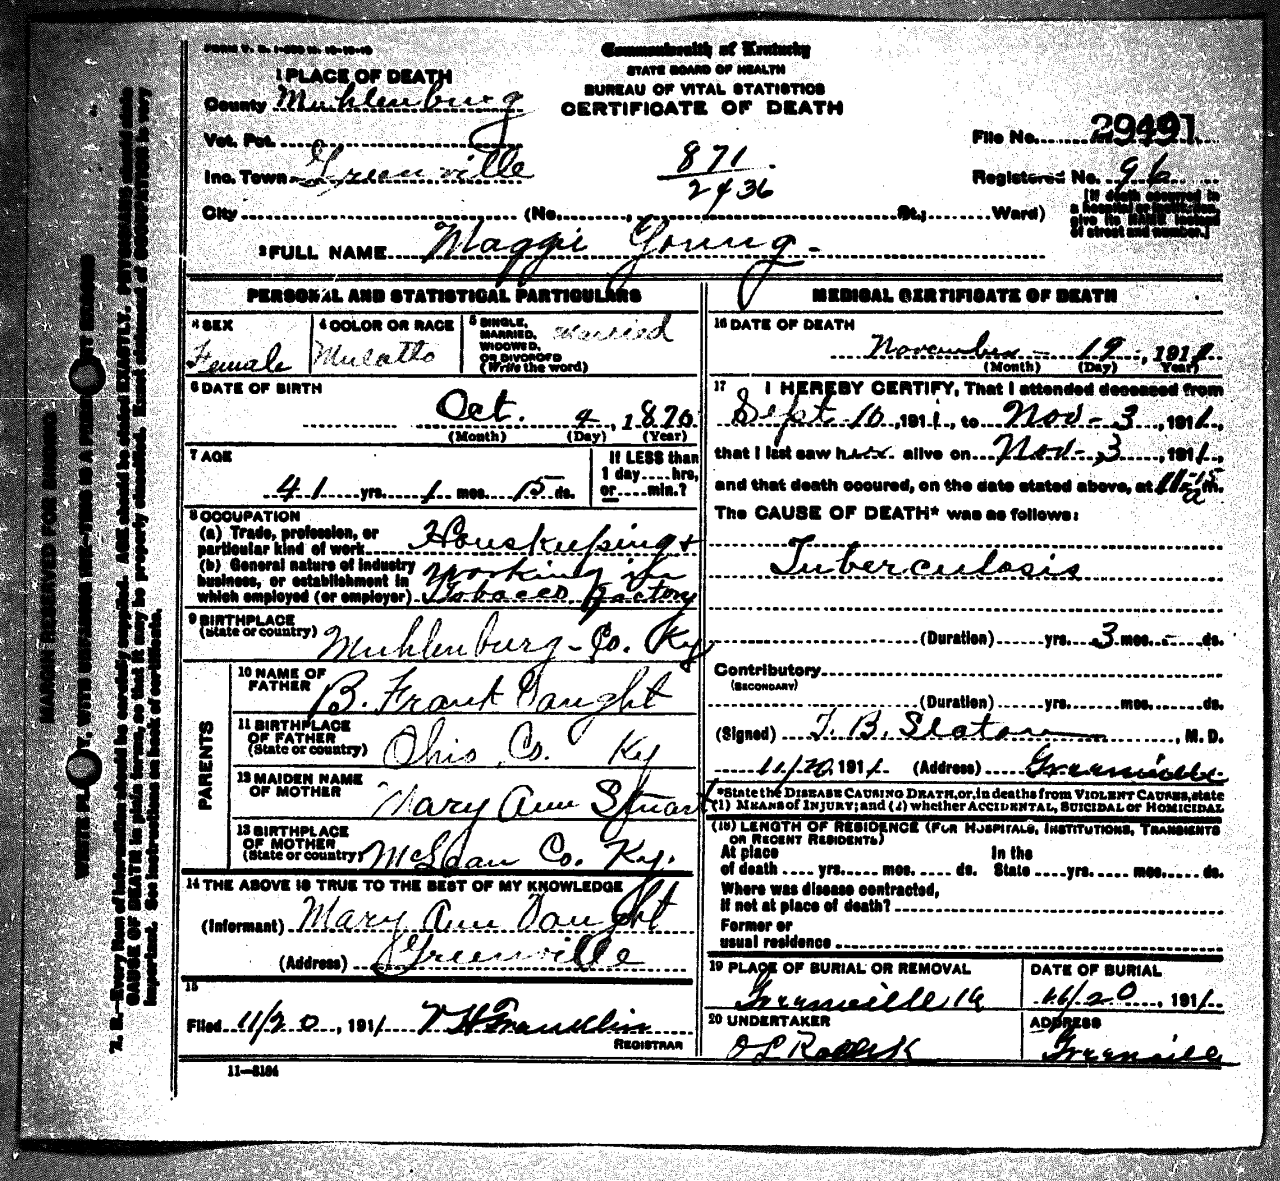 FORM V. S. 1-
Commonwealth of Kentucky
STATE BOARD OF HEALTH
BUREAU OF VITAL STATISTICS
CERTIFICATE OF DEATH
1 PLACE OF DEATH
County Muhlenburg
Vot. Pct.
Inc. Town Greenville
871
2436
File No. 29491
Registered No. 96
City (No. , St.; Ward)
[If death occurred in
a hospital or institution,
give its NAME instead
of street and number.]
2 FULL NAME Maggi Young
PERSONAL AND STATISTICAL PARTICULARS
3 SEX
Female
4 COLOR OR RACE
Mulatto
5 SINGLE,
MARRIED,
WIDOWED,
OR DIVORCED
(Write the word)
Married
6 DATE OF BIRTH
Oct. 4, 1870
(Month) (Day) (Year)
7 AGE
41 yrs. 1 mos. 15 ds.
If LESS than
1 day hrs.
or min.?
8 OCCUPATION
(a) Trade, profession, or
particular kind of work Houskeeping +
(b) General nature of industry
business, or establishment in
which employed (or employer) working in
Tobacco Factory
9 BIRTHPLACE
(State or country) Muhlenburg - Co. Ky
PARENTS
10 NAME OF
FATHER B. Frank Vaught
11 BIRTHPLACE
OF FATHER
(State or country) Ohio Co. Ky
12 MAIDEN NAME
OF MOTHER Mary Ann Stuart
13 BIRTHPLACE
OF MOTHER
(State or country) McLean Co. Ky.
14 THE ABOVE IS TRUE TO THE BEST OF MY KNOWLEDGE
(Informant) Mary Ann Vaught
(Address) Greenville
15
Filed 11/20, 1911 Franklin
REGISTRAR
11—5184
MEDICAL CERTIFICATE OF DEATH
16 DATE OF DEATH
November - 19, 1911
(Month) (Day) (Year)
17 I HEREBY CERTIFY, That I attended deceased from
Sept 10, 1911, to Nov - 3, 1911,
that I last saw her alive on Nov -, 3, 1911,
and that death occured, on the date stated above, at 11-15 a m.
The CAUSE OF DEATH* was as follows:
Tuberculosis
(Duration) yrs. 3 mos. - ds.
Contributory
(SECONDARY)
(Duration) yrs. mos. ds.
(Signed) T. B. Slaton, M. D.
11/20, 1911 (Address) Greenville
*State the DISEASE CAUSING DEATH, or, in deaths from VIOLENT CAUSES, state
(1) MEANS OF INJURY; and (2) whether ACCIDENTAL, SUICIDAL or HOMICIDAL
(18) LENGTH OF RESIDENCE (FOR HOSPITALS, INSTITUTIONS, TRANSIENTS
OR RECENT RESIDENTS)
At place
of death yrs. mos. ds.
In the
State yrs. mos. ds.
Where was disease contracted,
if not at place of death?
Former or
usual residence
19 PLACE OF BURIAL OR REMOVAL
Greenville
DATE OF BURIAL
11/20, 1911
20 UNDERTAKER
ADDRESS
Greenville
MARGIN RESERVED FOR BINDING
WRITE PLAINLY, WITH UNFADING INK—THIS IS A PERMANENT RECORD
N. B.—Every item of information should be carefully supplied. AGE should be stated EXACTLY. PHYSICIANS should state
CAUSE OF DEATH in plain terms, so that it may be properly classified. Exact statement of OCCUPATION is very
important. See instructions on back of certificate.